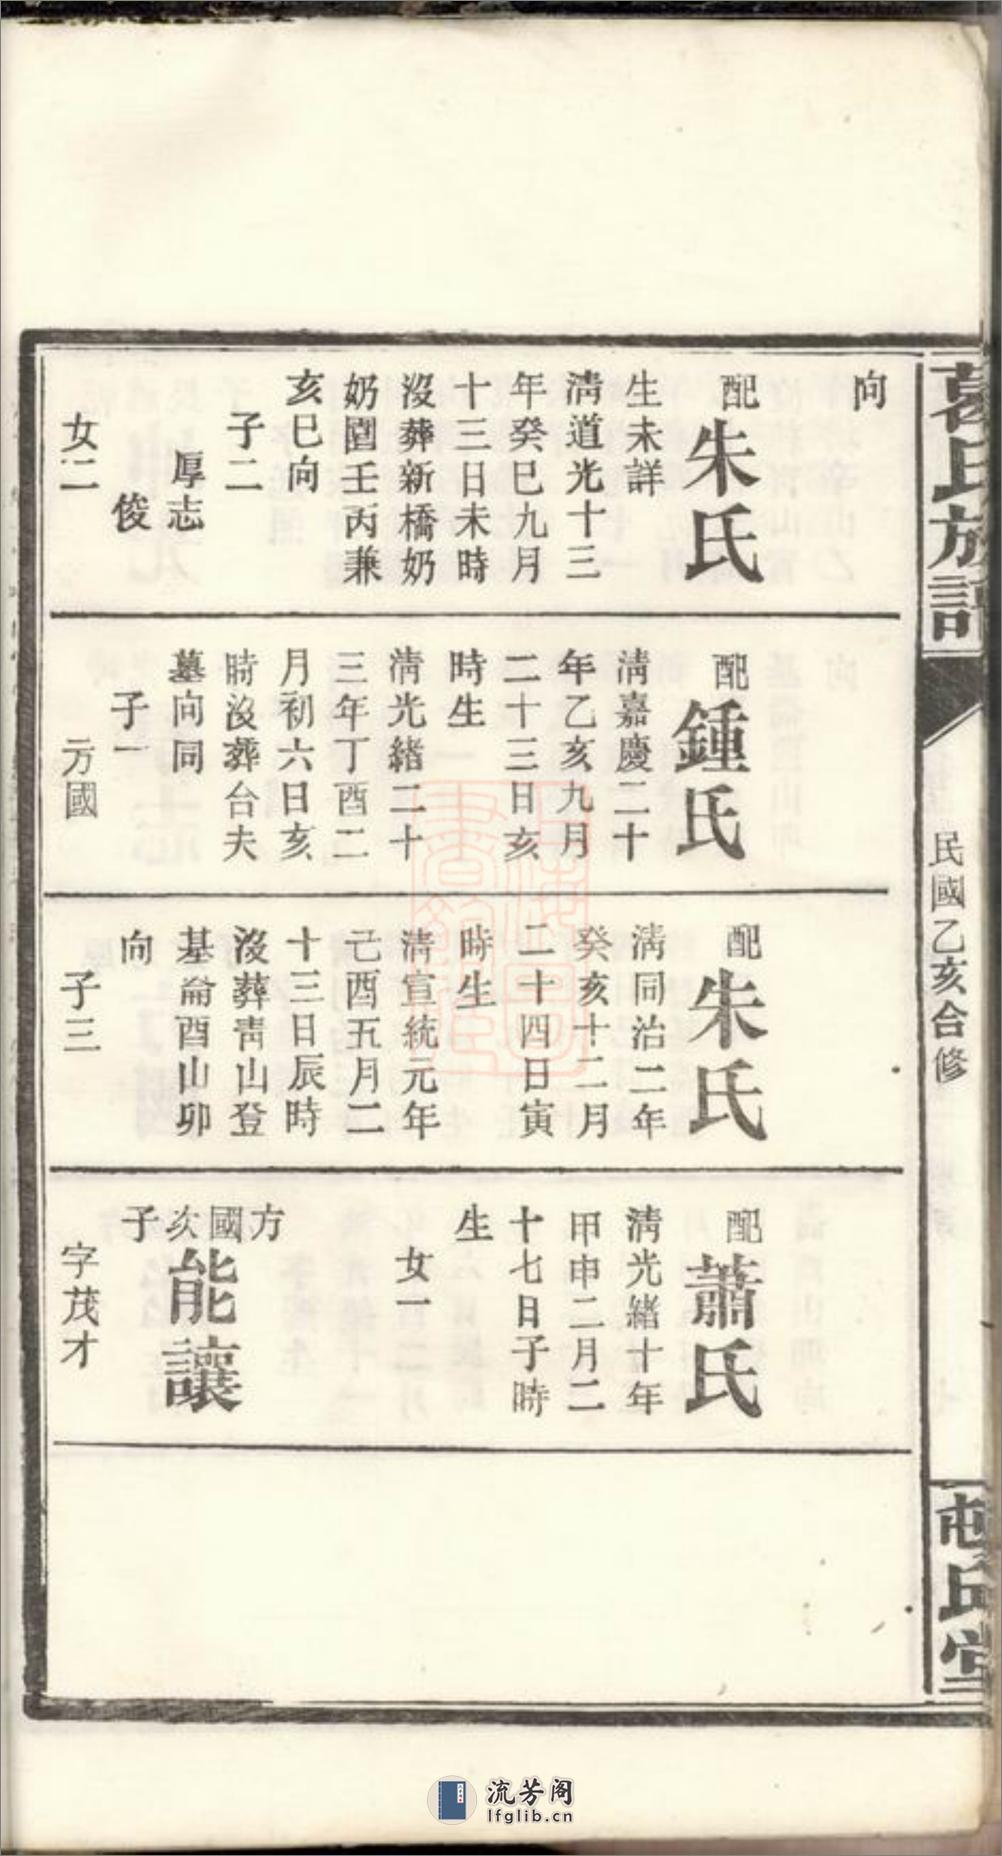 葛氏族譜
民國乙亥合修
向
配朱氏
生未詳
清道光十三
年癸巳九月
十三日未時
沒葬新橋奶
奶園壬丙兼
亥巳向
子二
厚志
俊
女二
配鍾氏
清嘉慶二十
年乙亥九月
二十三日亥
時生
清光緒二十
三年丁酉二
月初六日亥
時沒葬台夫
墓向同
子一
方國
配朱氏
清同治二年
癸亥十二月
二十四日寅
時生
清宣統元年
己酉五月二
十三日辰時
沒葬青山登
基崙酉山卯
向
子三
配蕭氏
清光緒十年
甲申二月二
十七日子時
生
女一
方國次子
能讓
字茂才
流芳阁
lfglib.cn